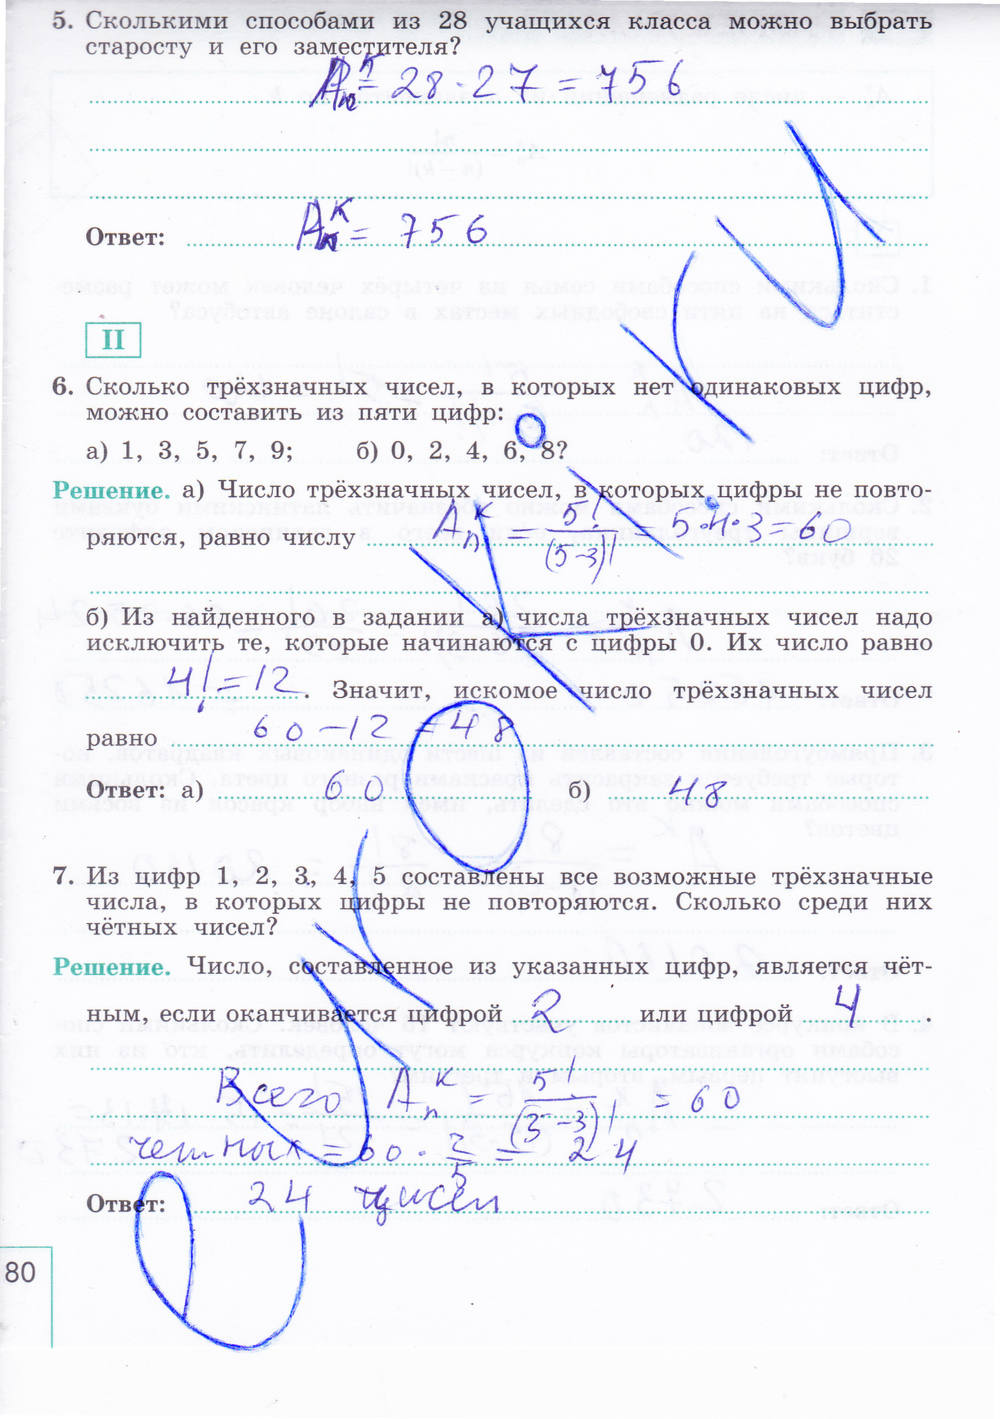 5. Сколькими способами из 28 учащихся класса можно выбрать
старосту и его заместителя?
= 28 · 27 = 756
Ответ: Aₙᴷ = 756
II
6. Сколько трёхзначных чисел, в которых нет одинаковых цифр,
можно составить из пяти цифр:
а) 1, 3, 5, 7, 9; б) 0, 2, 4, 6, 8?
Решение. а) Число трёхзначных чисел, в которых цифры не повто-
ряются, равно числу Aₙᴷ = 5!/(5-3)! 5·4·3=60
б) Из найденного в задании а) числа трёхзначных чисел надо
исключить те, которые начинаются с цифры 0. Их число равно
4!=12. Значит, искомое число трёхзначных чисел
равно 60-12=48
Ответ: а) 60 б) 48
7. Из цифр 1, 2, 3, 4, 5 составлены все возможные трёхзначные
числа, в которых цифры не повторяются. Сколько среди них
чётных чисел?
Решение. Число, составленное из указанных цифр, является чёт-
ным, если оканчивается цифрой 2 или цифрой 4.
Всего Aₙᴷ = 5!/(5-3)! = 60
четных = 60 · 2/5 = 24
Ответ: 24 чисел
80